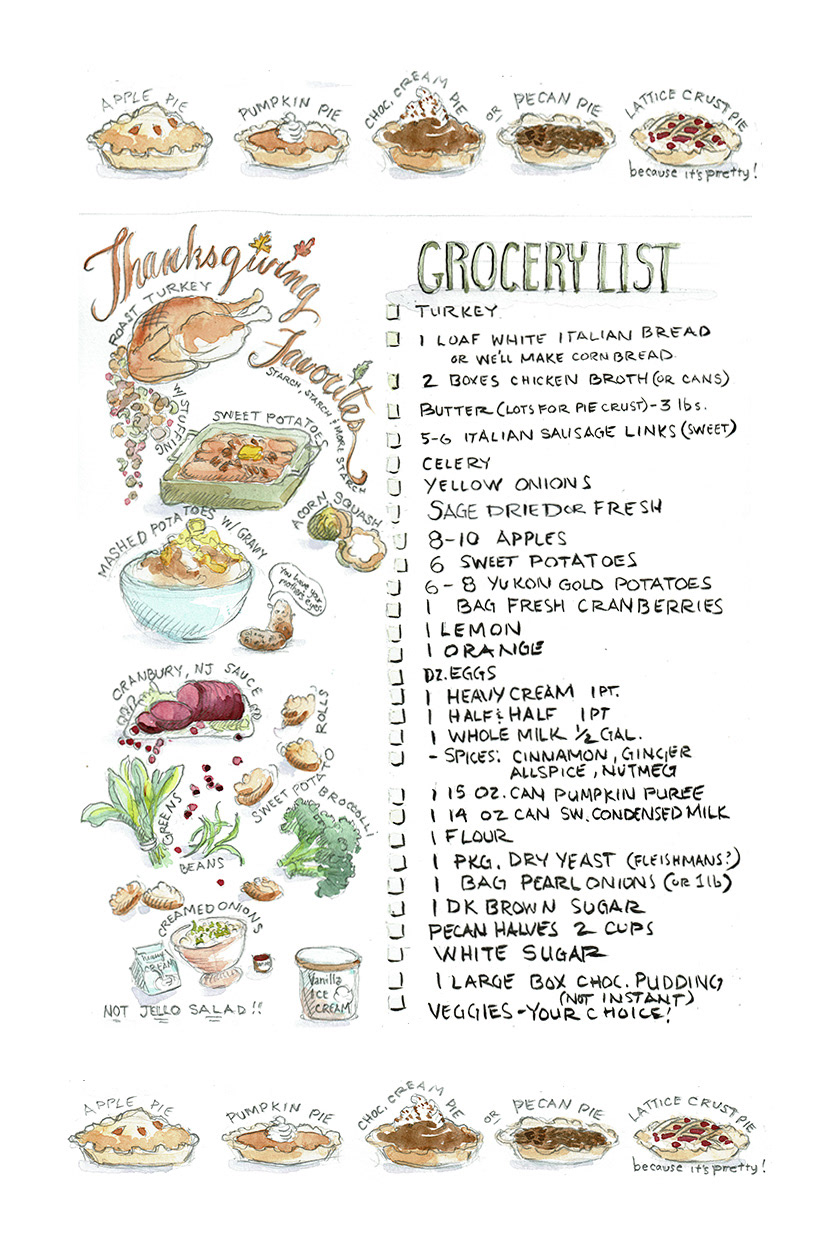 APPLE PIE
PUMPKIN PIE
CHOC. CREAM PIE
OR
PECAN PIE
LATTICE CRUST PIE
because it's pretty!
Thanksgiving
Favorites
STARCH, STARCH & MORE STARCH
ROAST TURKEY
W/ STUFFING
SWEET POTATOES
ACORN SQUASH
MASHED POTATOES W/ GRAVY
You have your
mother's eyes.
CRANBURY, NJ SAUCE
SWEET POTATO ROLLS
GREENS
BEANS
BROCCOLI
CREAMED ONIONS
heavy
CREAM
Vanilla
ICE
CREAM
NOT JELLO SALAD!!
GROCERY LIST
TURKEY
1 LOAF WHITE ITALIAN BREAD
OR WE'LL MAKE CORNBREAD
2 BOXES CHICKEN BROTH (OR CANS)
BUTTER (LOTS FOR PIE CRUST) - 3 lbs.
5-6 ITALIAN SAUSAGE LINKS (SWEET)
CELERY
YELLOW ONIONS
SAGE DRIED OR FRESH
8-10 APPLES
6 SWEET POTATOES
6-8 YUKON GOLD POTATOES
1 BAG FRESH CRANBERRIES
1 LEMON
1 ORANGE
DZ. EGGS
1 HEAVY CREAM 1 PT.
1 HALF & HALF 1 PT
1 WHOLE MILK ½ GAL.
- SPICES: CINNAMON, GINGER
ALLSPICE, NUTMEG
1 15 OZ. CAN PUMPKIN PUREE
1 14 OZ CAN SW. CONDENSED MILK
1 FLOUR
1 PKG. DRY YEAST (FLEISHMANS?)
1 BAG PEARL ONIONS (OR 1 lb)
1 DK BROWN SUGAR
PECAN HALVES 2 CUPS
WHITE SUGAR
1 LARGE BOX CHOC. PUDDING
(NOT INSTANT)
VEGGIES - YOUR CHOICE!
APPLE PIE
PUMPKIN PIE
CHOC. CREAM PIE
OR
PECAN PIE
LATTICE CRUST PIE
because it's pretty!